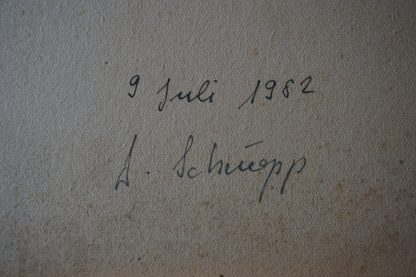 9 Juli 1982
D. Schnepp